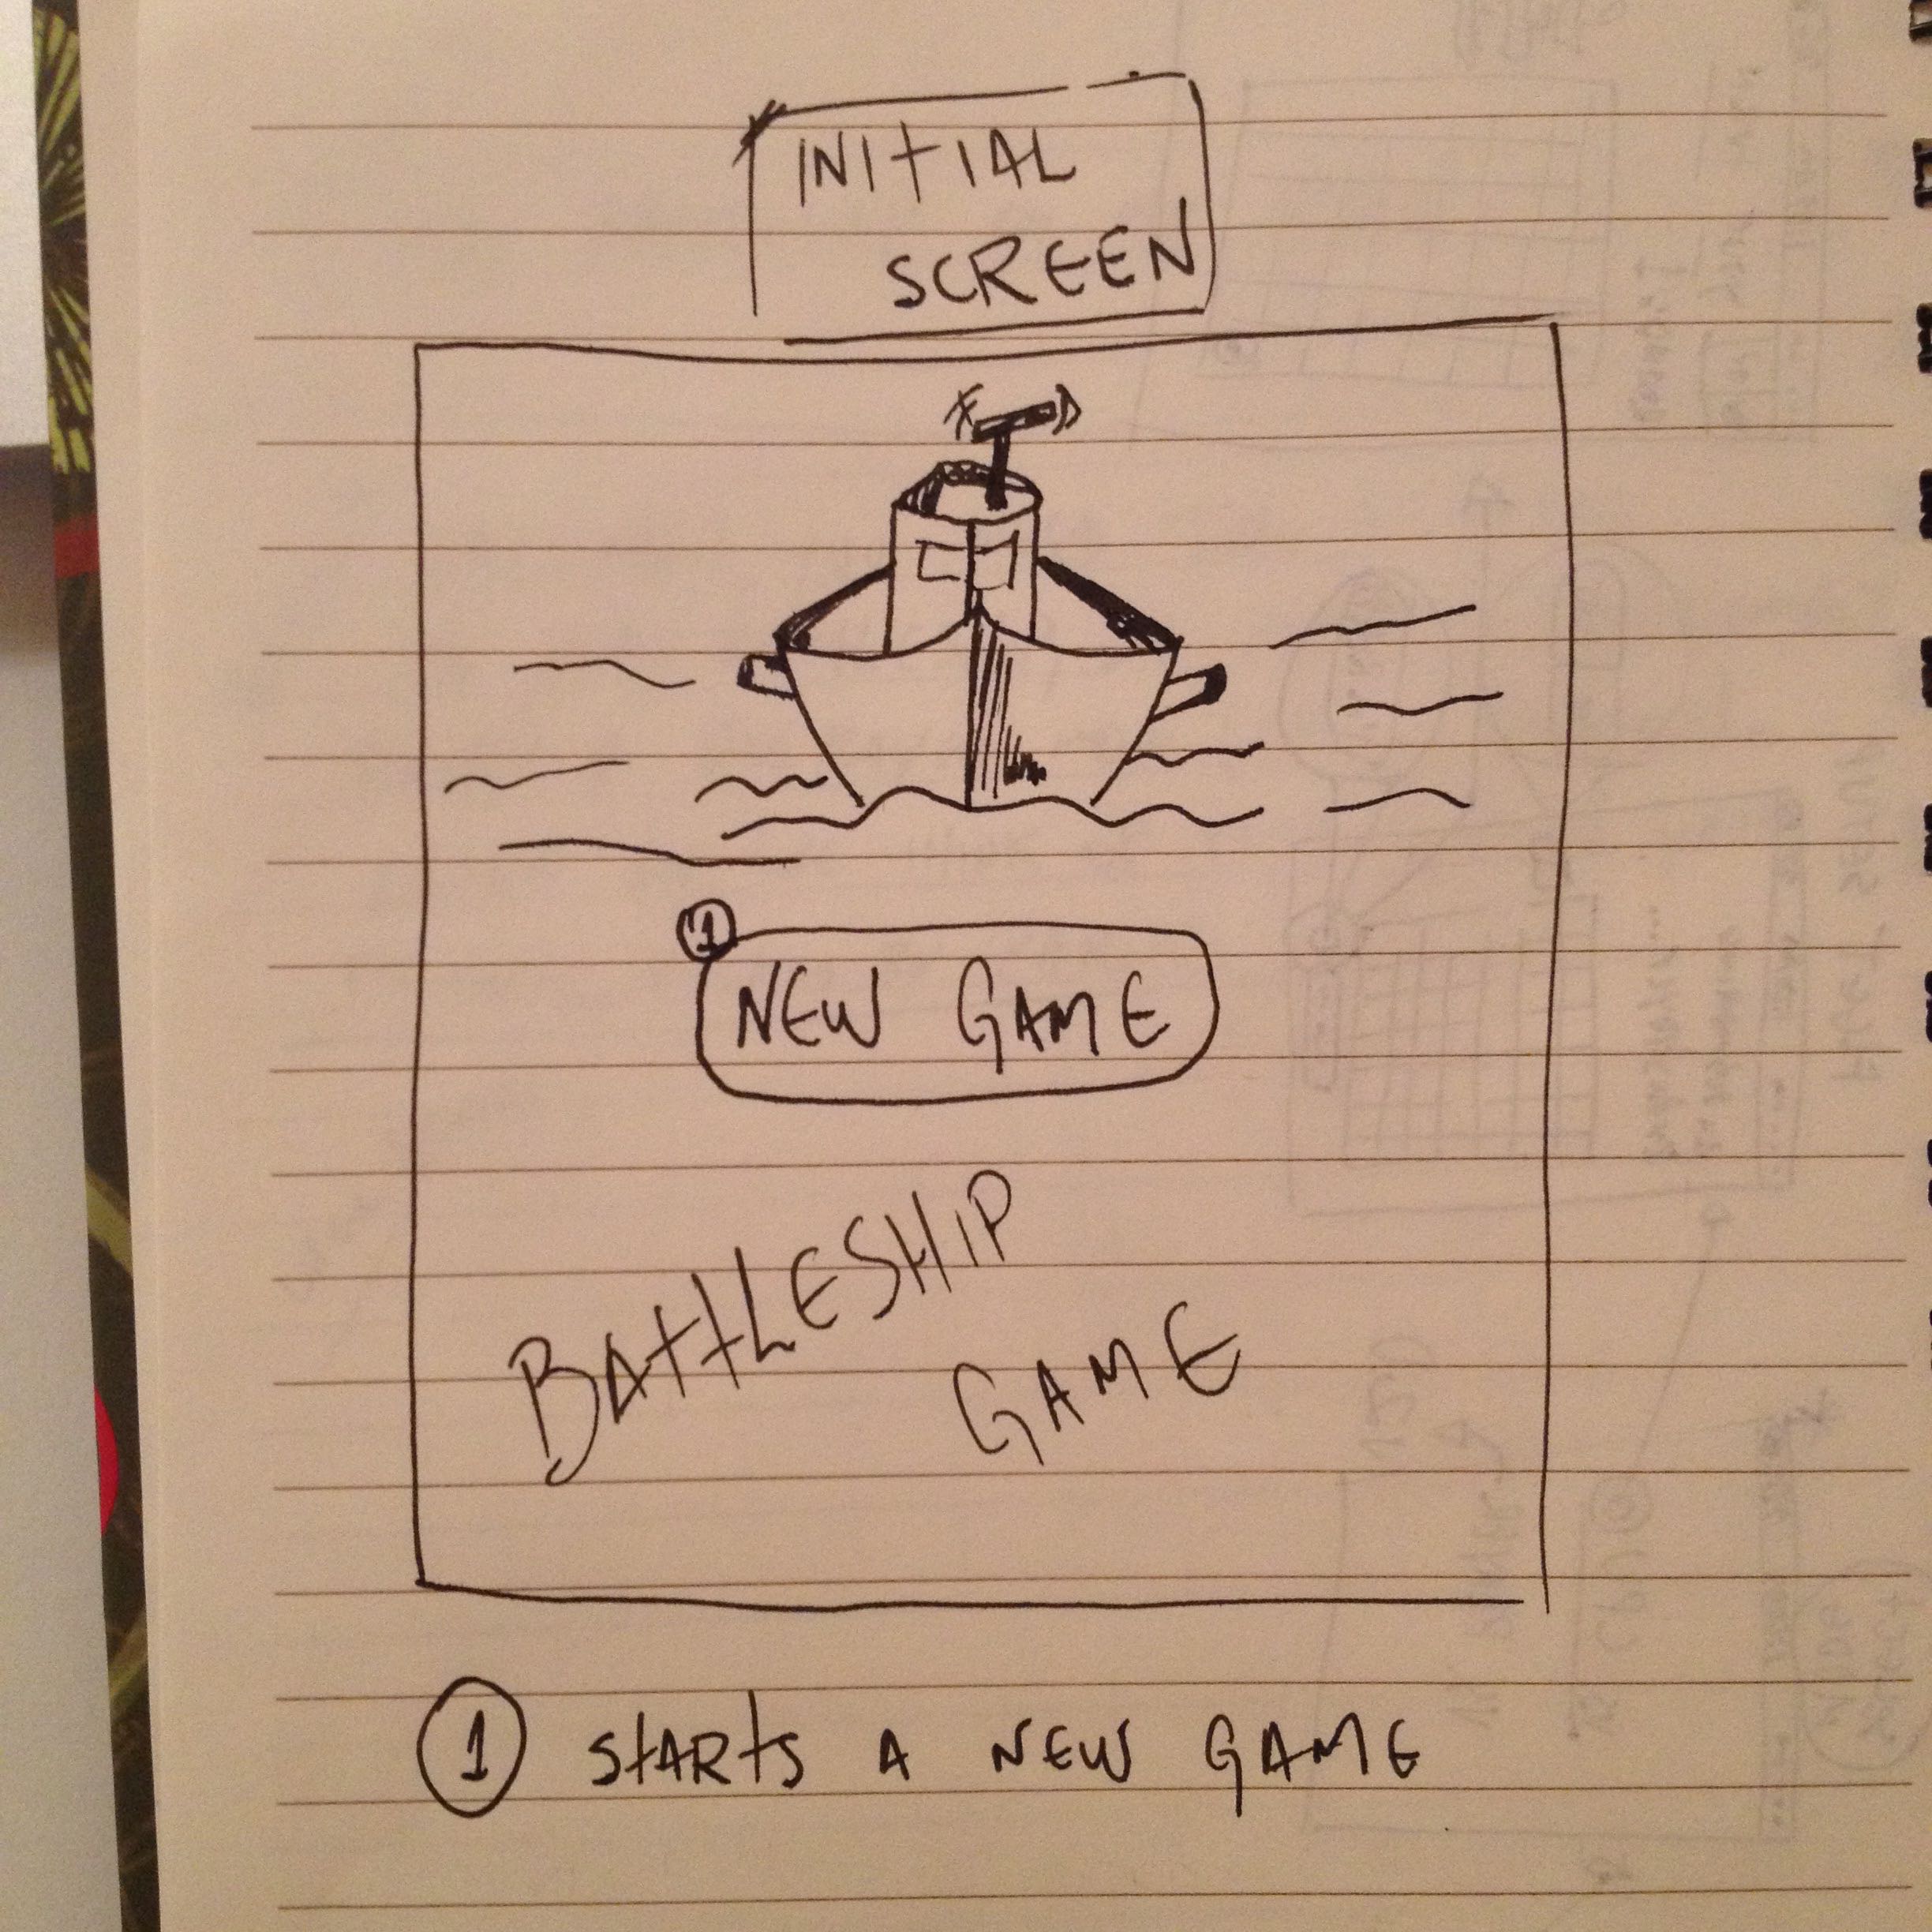 INITIAL
SCREEN
1
NEW GAME
BATTLESHIP
GAME
1 STARTS A NEW GAME